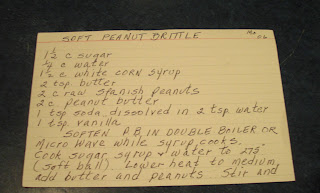 SOFT PEANUT BRITTLE
1½ c sugar
¼ c water
1½ c white corn syrup
2 tsp. butter
2 c raw spanish peanuts
2 c. peanut butter
1 tsp soda dissolved in 2 tsp. water
1 tsp vanilla
SOFTEN P.B. IN DOUBLE BOILER OR
MICRO WAVE while syrup cooks.
Cook sugar, syrup & water to 275°
(Soft ball). Lower heat to medium,
add butter and peanuts. Stir and